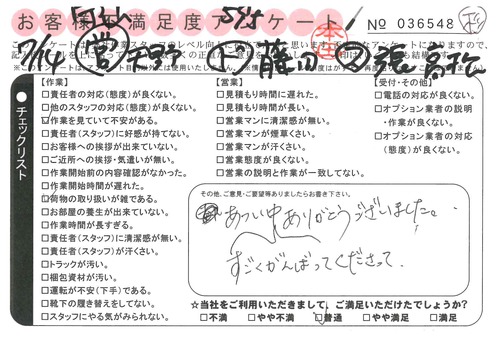 お客様満足度アンケート
本
No 036548
【作業】
□責任者の対応(態度)が良くない。
□他のスタッフの対応(態度)が良くない。
□作業を見ていて不安がある。
□責任者(スタッフ)に好感が持てない。
□お客様への挨拶が出来ていない。
□ご近所への挨拶・気遣いが無い。
□作業開始前の内容確認がなかった。
□作業開始時間が遅れた。
□荷物の取り扱いが雑である。
□お部屋の養生が出来ていない。
□作業時間が長すぎる。
□責任者(スタッフ)に清潔感が無い。
□責任者(スタッフ)が汗くさい。
□トラックが汚い。
□梱包資材が汚い。
□運転が不安(下手)である。
□靴下の履き替えをしてない。
□スタッフにやる気がみられない。
チェックリスト
【営業】
□見積もり時間に遅れた。
□見積もり時間が長い。
□営業マンに清潔感が無い。
□営業マンが煙草くさい。
□営業マンが汗くさい。
□営業態度が良くない。
□営業の説明と作業が一致してない。
【受付・その他】
□電話の対応が良くない。
□オプション業者の説明
・作業が良くない。
□オプション業者の対応
(態度)が良くない。
その他、ご意見・ご要望等ありましたらお書き下さい。
あつい中ありがとうございました。
すごくがんばってくださって、
☆当社をご利用いただきまして、ご満足いただけたでしょうか?
□不満 □やや不満 □普通 □やや満足 □満足